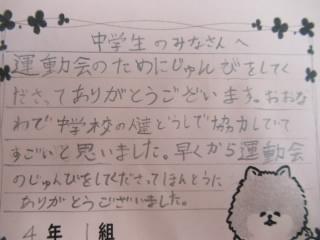 中学生のみなさんへ
運動会のためにじゅんびをしてく
ださってありがとうございます。おおな
わで中学校の人達どうしで協力しでて
すごいと思いました。早くから運動会
のじゅんびをしてくださってほんとうに
ありがとうございました。
4年 1組